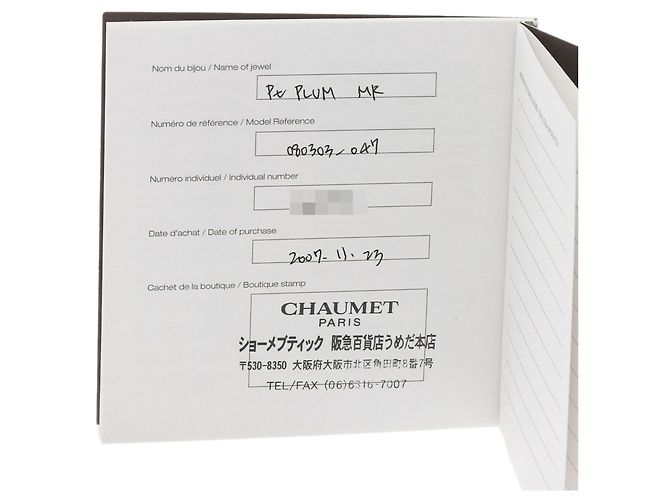 Nom du bijou / Name of jewel
Pt PLUM MR
Numéro de référence / Model Reference
080303-047
Numéro individuel / Individual number
Date d'achat / Date of purchase
2007-11.23
Cachet de la boutique / Boutique stamp
CHAUMET
PARIS
ショーメブティック 阪急百貨店うめだ本店
〒530-8350 大阪府大阪市北区角田町8番7号
TEL/FAX (06)6316-7007